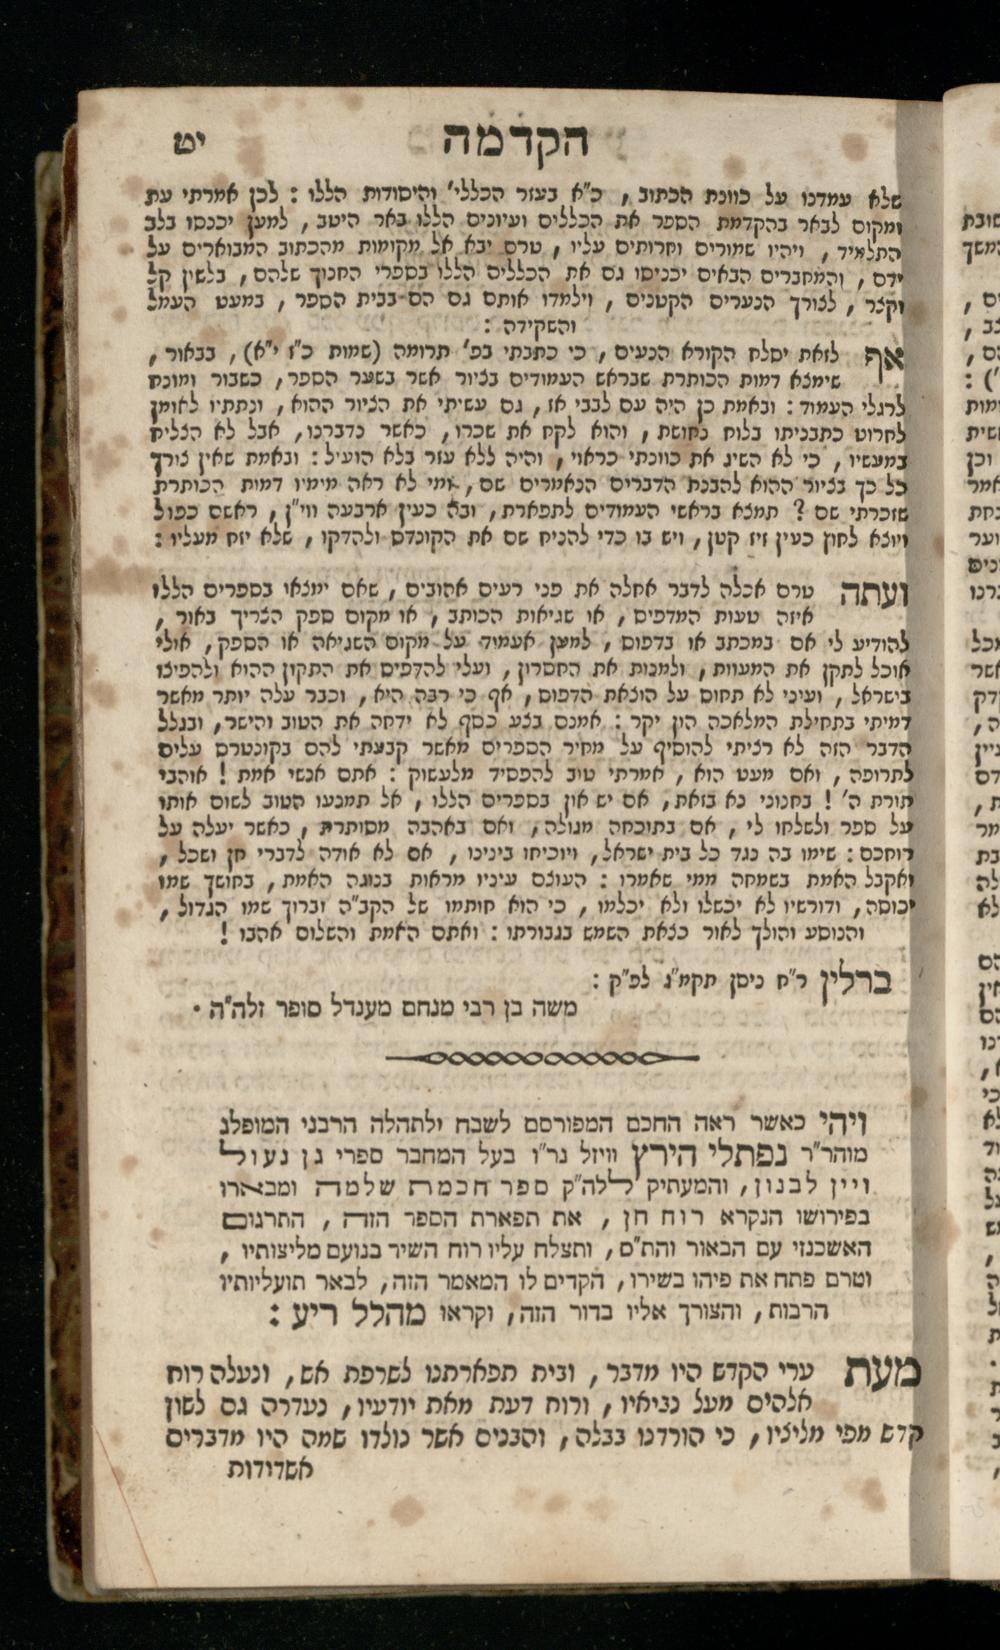 הקדמה יט
שלא עמדנו על כוונת הכתוב, כ"א בעזר הכללי' והיסודות הללו: לכן אמרתי עת
ומקום לבאר בהקדמת הספר את הכללים ועיונים הללו באר היטב, למען יכנסו בלב
התלמיד, ויהיו שמורים וחרותים עליו, טרם יבא אל מקומות מהכתוב המבוארים על
ידם, והמחברים הבאים יכניסו גם את הכללים הללו בספרי החנוך שלהם, בלשון קל
וקצר, לצורך הנערים הקטנים, וילמדו אותם גם הם בבית הספר, במעט העמל
והשקידה:
אף לזאת יסלח הקורא הנעים, כי כתבתי בפ' תרומה (שמות כ"ז י"א), בבאור,
שימצא דמות הכותרת שבראש העמודים בציור אשר בשער הספר, כשבור ומונח
לרגלי העמוד: ובאמת כן היה עם לבבי אז, גם עשיתי את הציור ההוא, ונתתיו לאומן
לחרוט כתבניתו בלוח נחושת, והוא לקח את שכרו, כאשר נדברנו, אבל לא הצליח
במעשיו, כי לא השיג את כוונתי כראוי, והיה ללא עזר בלא הועיל: ובאמת שאין צורך
כל כך בציור ההוא להבנת הדברים הנאמרים שם, ומי לא ראה מימיו דמות הכותרת
שזכרתי שם? תמצא בראשי העמודים לתפארת, ובה כעין ארבעה ווי"ן, ראשם כפול
ויוצא לחוץ כעין זיז קטן, ויש בו כדי להניח שם את הקונדס ולהדקו, שלא יזח מעליו:
ועתה טרם אכלה לדבר אחלה את פני רעים אהובים, שאם ימצאו בספרים הללו
איזה טעות המדפיס, או שגיאות הכותב, או מקום ספק הצריך באור,
להודיע לי אם במכתב או בדפוס, למען אעמוד על מקום השגיאה או הספק, אולי
אוכל לתקן את המעוות, ולמנות את החסרון, ועלי להדפיס את התקון ההוא ולהפיצו
בישראל, ועיני לא תחוס על הוצאת הדפוס, אף כי רבה היא, וכבר עלה יותר מאשר
דמיתי בתחילת המלאכה הון יקר: אמנם בצע כסף לא ידחה את הטוב והישר, ובגלל
הדבר הזה לא רציתי להוסיף על מחיר הספרים מאשר קבעתי להם בקונטרס עלים
לתרופה, ואם מעט הוא, אמרתי טוב להפסיד מלעשוק: אתם אנשי אמת! אוהבי
תורת ה'! בחנוני נא בזאת, אם יש און בספרים הללו, אל תמנעו הטוב לשום אותו
על ספר ולשלחו לי, אם בתוכחה מגולה, ואם באהבה מסותרת, כאשר יעלה על
רוחכם: שימו בה נגד כל בית ישראל, ויוכיחו בינינו, אם לא אודה לדברי חן ושכל,
ואקבל האמת בשמחה ממי שאמרו: העוצם עיניו מראות בנוגה האמת, בחושך שמו
יכוסה, ודורשיו לא יכשלו ולא יכלמו, כי הוא חותמו של הקב"ה וברוך שמו הגדול,
והנוסע והולך לאור כצאת השמש בגבורתו: ואתם האמת והשלום אהבו!
ברלין ר"ח ניסן תקמ"ג לפ"ק:
משה בן רבי מנחם מענדל סופר זלה"ה.
ויהי כאשר ראה החכם המפורסם לשבח ולתהלה הרבני המופלג
מוהר"ר נפתלי הירץ וויזל נר"ו בעל המחבר ספרי גן נעול
ויין לבנון, והמעתיק ללה"ק ספר חכמת שלמה ומבארו
בפירושו הנקרא רוח חן, את תפארת הספר הזה, התרגום
האשכנזי עם הבאור והת"ס, ותצלח עליו רוח השיר בנועם מליצותיו,
וטרם פתח את פיהו בשירו, הקדים לו המאמר הזה, לבאר תועליותיו
הרבות, והצורך אליו בדור הזה, וקראו מהלל ריע:
מעת ערי הקדש היו מדבר, ובית תפארתנו לשרפת אש, ונעלה רוח
אלהים מעל נביאיו, ורוח דעת מאת יודעיו, נעדרה גם לשון
קדש מפי מליציו, כי הורדנו בבלה, והבנים אשר נולדו שמה היו מדברים
אשדודות